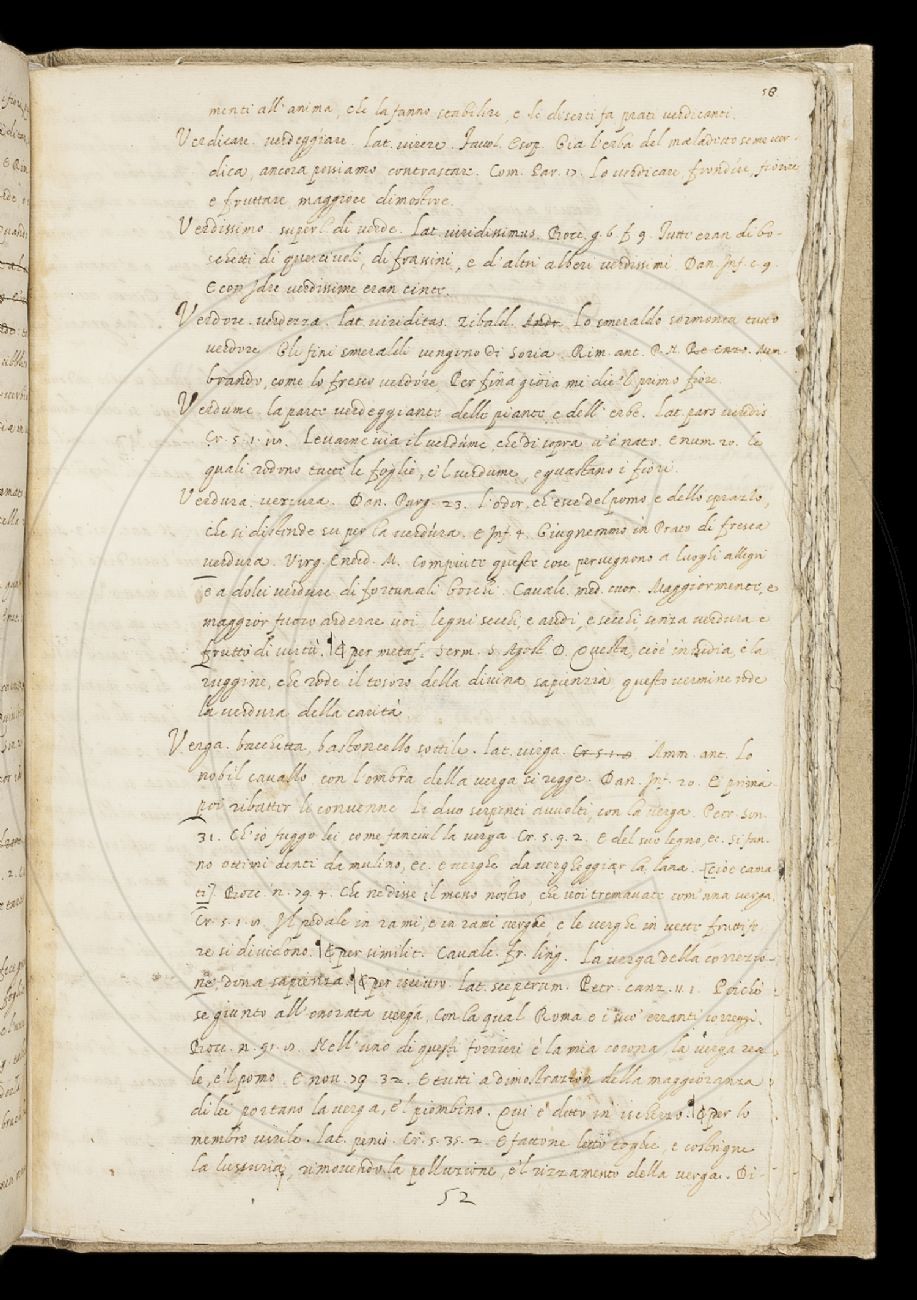 58
menti all'anima, che la fanno stabilire, e li diserti fa prati verdicanti.
Verdicare. verdeggiare. Lat. virere. Favol. Esop. Già l'erba del maladetto seme ver-
dica, ancora possiamo contrastare. Com. Par. 17. Lo verdicare, frondire, fiorire
e fruttare, maggiore dimostrre.
Verdissimo. superl. di verde. Lat. viridissimus. Bocc. g. 6. f. 9. Tutti eran di bo-
schetti di querciuoli, di frassini, e d'altri alberi verdissimi. Dan. Inf. c. 9.
E con Idre verdissime eran cinte.
Verdore. verdezza. Lat. viriditas. Tibald. Andr. Lo smeraldo sormonta tutto
verdore. Gli fini smeraldi vengono di Soria. Rim. ant. P. N. Re Enzo. Mem-
brando, come lo fresco verdóre Per fina gioia mi diè 'l primo fiore.
Verdume. la parte verdeggiante delle piante, e dell'erbe. Lat. pars viridis
Cr. 5. 1. Levarne via il verdúme, che di sopra v'è nato. E num. 20. le
quali rodono tutte le foglie, e 'l verdume, e guastano i fiori.
Verdura, verzura. Dan. Purg. 23. L'odor, ch'esce del pomo e dello sprazzo,
che si distende su per la verdúra. E Inf. 4. Giugnemmo in Prato di fresca
verdura. Virg. Eneid. M. Compiute queste cose pervegnono a luoghi allegri
e a dolci verdure di fortunali boschi. Cavalc. med. cuor. Maggiormente, e
maggior fuoco arderae voi, legni secchi, e aridi, e secchi, senza verdura e
frutto di virtù. ¶ E per metaf. Serm. S. Agost. D. Questa, cioè invidia, è la
ruggine, che rode il tesoro della divina sapienzia questo vermine rode
la verdura della carità
Verga. bacchetta, bastoncello sottile. Lat. virga. Cr. 5. 1. 9 Amm. ant. Lo
nobil cavallo con l'ombra della verga si regge. Dan. Inf. 20. E prima
poi ribatter le convenne Li duo serpenti avvolti, con la verga. Petr. son.
31. Ch'io fuggo lei come fanciul la verga. Cr. 5. 9. 2. E del suo legno, ec. si fan-
no ottimi denti da mulino, ec. e verghe da vergheggiar la lana. [cioè cama-
ti] Bocc. n. 79. 4. Che ne disse il meno nostro, che voi tremavate com'una verga.
Cr. 5. 1. Il pedale in rami, e in rami verghe, e le verghe in vette fruttife-
re si dividono. ¶ E per similit. Cavalc. fr. ling. La verga della correzio-
ne, dona sapienza. ¶ E per iscettro. Lat. sceptrum. Petr. canz. 11. 1. Poichè
se giunto all'onorata verga, Con la qual Roma e i suo' erranti correggi.
Bocc. n. 91. Nell'uno di questi forzieri è la mia corona, la verga rea-
le, e 'l pomo. E nov. 79. 32. E tutti a dimostrazion della maggioranza
di lei portano la verga, e 'l piombino. Qui è detto in ischerzo. ¶ E per lo
membro virile. Lat. penis. Cr. 5. 35. 2. E fattone letto toglie, e costrigne
la lussuria, rimovendo la polluzione, e 'l rizzamento della verga. Di-
52